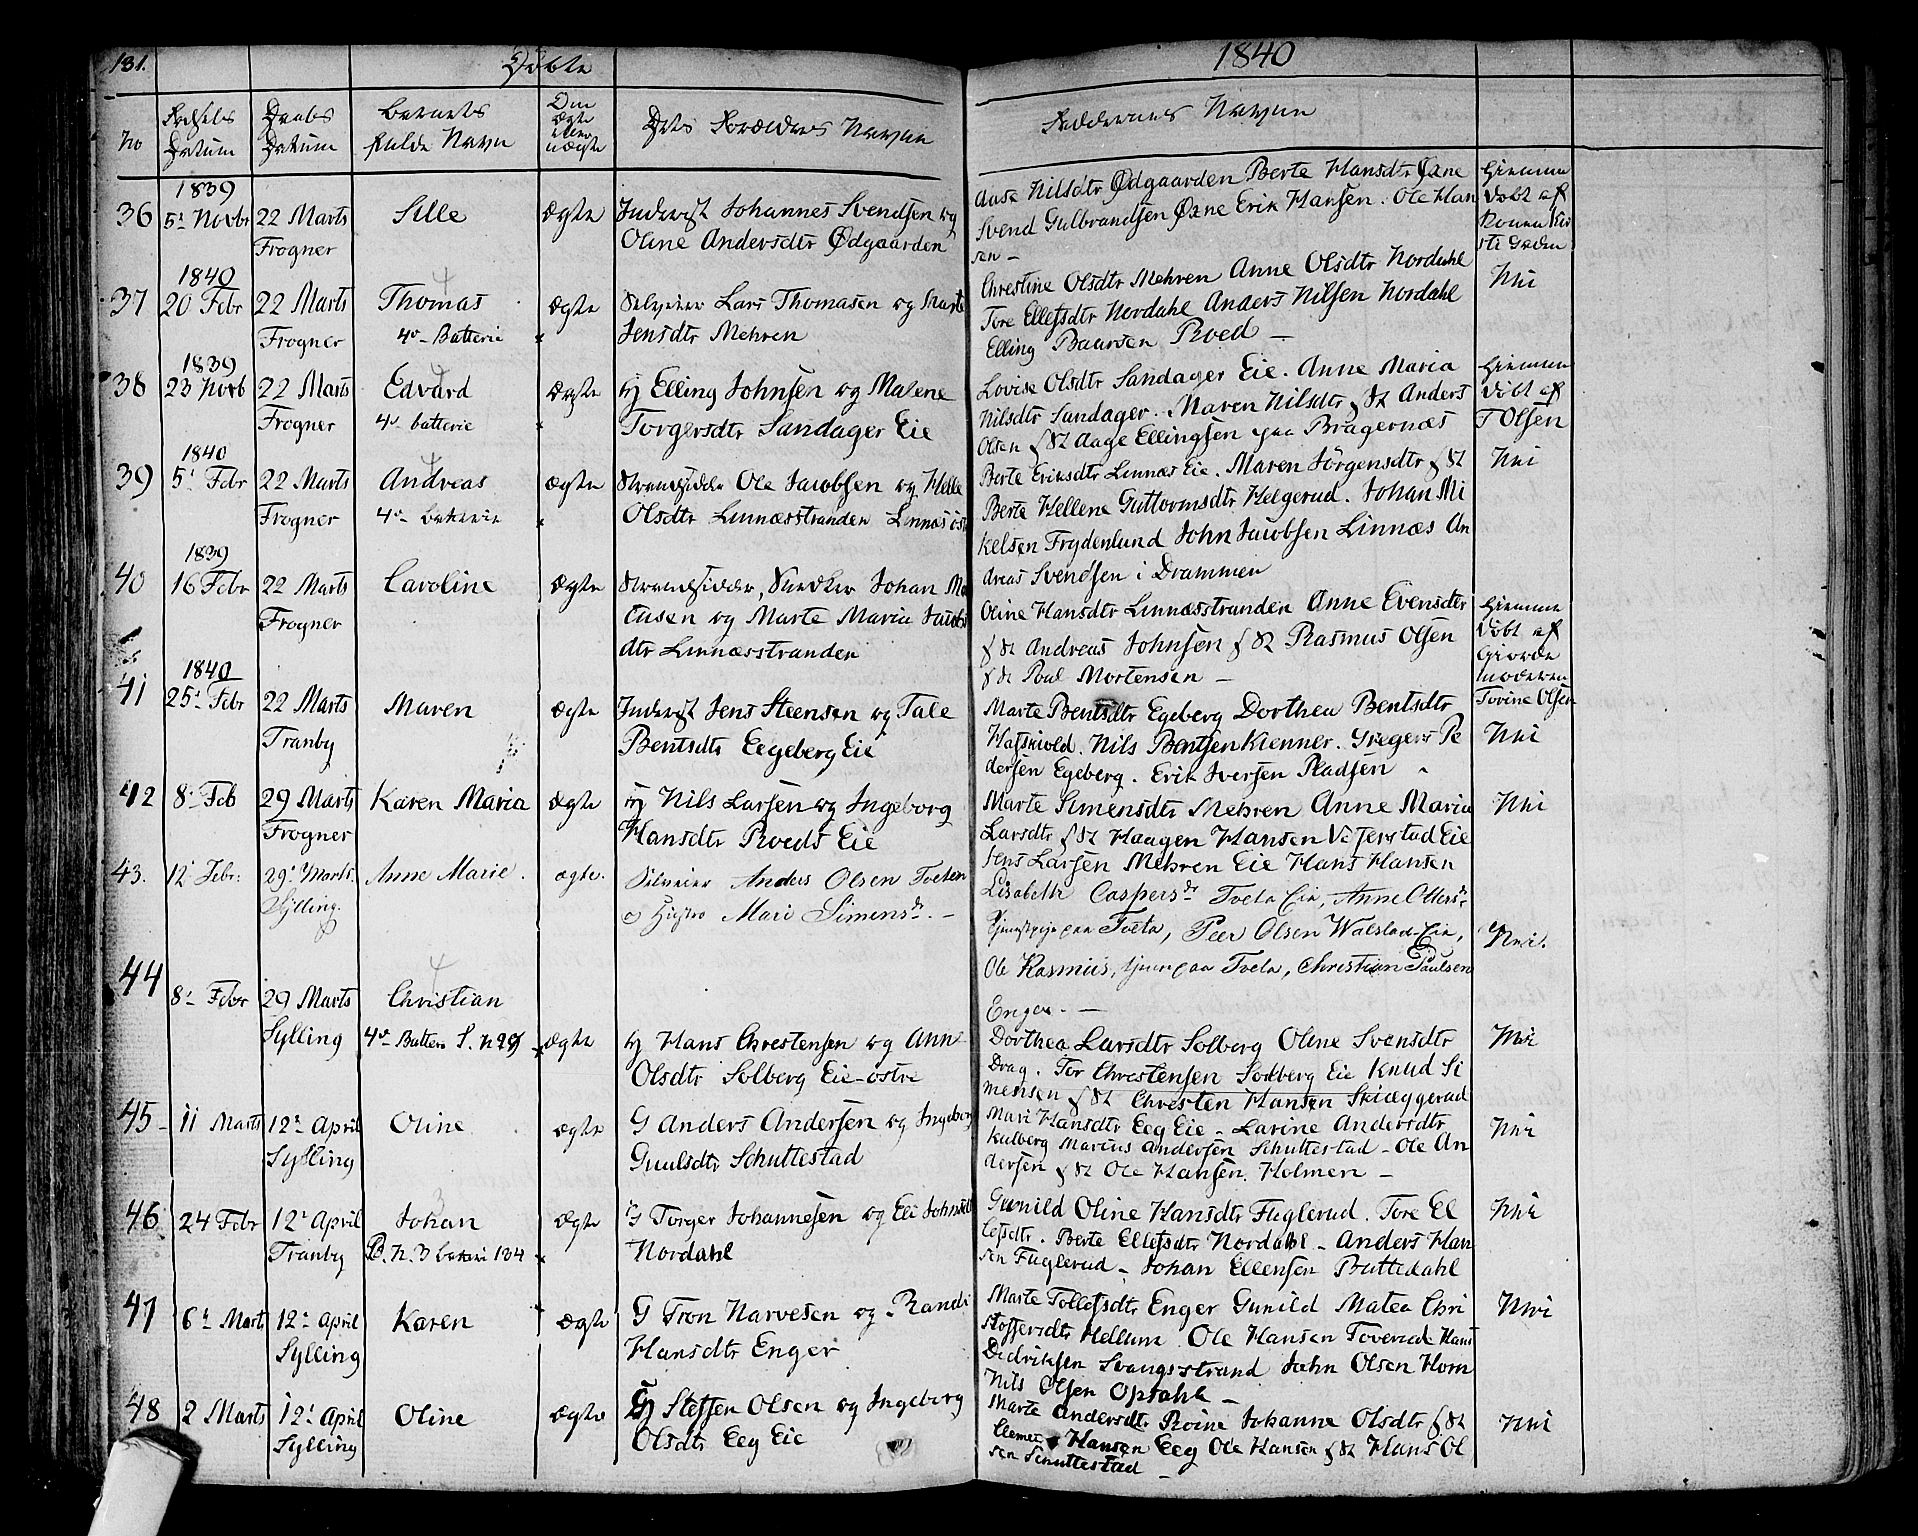 131.
Døbte
1840
No
Fødsels Datum
Daabs Datum
Barnets fulde Navn
Om ægte eller uægte
Dets Forældres Navne
Faddernes Navne
36
1839
5t Novbr
22 Marts
Frogner
Sille
Ægte
Inderst Johannes Svendsen og
Oline Andersdtr Ødgaarden
Aase Nilsdtr Ødgaarden Berte Hansdtr Øxne
Svend Gulbrandsen Øxne Erik Hansen. Ole Han
sen -
Hiemme
døbt af
Konen
37
1840
20 Febr
22 Marts
Frogner
Thomas
4
4de Batterie
Ægte
Selveier Lars Thomasen og Marte
Jensdtr Mehren
Chrestine Olsdtr Mehren Anne Olsdtr Nordahl
Tore Ellefsdtr Nordahl Anders Nilsen Nordahl
Elling Paursen Roed -
Nei
38
1839
23 Novb
22 Marts
Frogner
Edvard
4
4de batterie
Ægte
Hj Elling Johnsen og Malene
Torgersdtr Sandager Eie
Lovise Olsdtr Sandager Eie. Anne Maria
Nilsdtr Sandager. Maren Nilsdtr f St Anders
Olsen f St Aage Ellingsen paa Bragernæs
Hiemme
døbt af
T Olsen
39
1840
5t Febr
22 Marts
Frogner
Andreas
4
4de baterie
Ægte
Strandsidder Ole Jacobsen og Helle
Olsdtr Linnæsstranden Linnæs øst
Berte Eriksdtr Linnæs Eie. Maren Jörgensdtr f St
Berte Hellene Guttormsdtr Helgerud. Johan Mi
kelsen Frydenlund John Jacobsen Linnæs An
dreas Svendsen i Drammen
Nei
40
1839
16 Febr
22 Marts
Frogner
Caroline
Ægte
Strandsidder, Snedker Johan Ma
tusen og Marte Maria Jacobs
dtr Linnæsstranden
Oline Hansdtr Linnæsstranden Anne Evensdtr
f St Andreas Johnsen f St Rasmus Olsen
f St Poul Mortensen -
Hiemme
døbt af
Giorde
moderen
Tovine Olsen
41
1840
25t Febr
22 Marts
Tranby
Maren
Ægte
Inderst Jens Steensen og Tale
Bentsdtr Eegeberg Eie
Marte Bentsdtr Egeberg Dorthea Bentsdtr
Hafskiold. Nils Bentsen Kienner. Gregers Pe
dersen Egeberg. Erik Iversen Pladsen
Nei
42
8t Feb
29 Marts
Frogner
Karen Maria
Ægte
Hj Nils Larsen og Ingeborg
Hansdtr Roeds Eie
Marte Simensdtr Mehren Anne Maria
Larsdtr f St Haagen Hansen Vefferstad Eie
Jens Larsen Mehren Eie Hans Hansen
Nei
43.
12t Febr:
29t Marts.
Sylling.
Anne Marie.
ægte.
Selveier Anders Olsen Tveten
og Hustro Mari Simensdr. -
Lisabeth Caspersdr Tveta Eie, Anne Ollersdr
Tjenstpige paa Tveta, Peer Olsen Walstad Eie,
Ole Rasmus, tjener paa Tveta, Christian Paulsen
Enger. -
Nei.
44
8t Febr
29 Marts
Sylling
Christian
4
4de Batteri S. N 29
Ægte
Hj Hans Chrestensen og Ann
Olsdtr Solberg Eie östre
Dorthea Larsdtr Solberg Oline Svensdtr
Drag. Tor Chrestensen Solberg Eie Knud Si
mensen f St Chresten Hansen Skiæggerud
Nei
45
11 Marts
12t April
Sylling
Oline
Ægte
G Anders Andersen og Ingeborg
Guulsdtr Schuttestad
Mari Hansdtr Eeg Eie - Larine Andersdtr
Kulberg Marius Andersen Schuttestad - Ole An
dersen f St Ole Hansen Holmen -
Nei
46
24 Febr
12t April
Tranby
Johan
3
B. N. 3 bateri 134
Ægte
G Torger Johannesen og Eli Johnsdtr
Nordahl
Gunild Oline Hansdtr Fuglerud. Tore El
lefsdtr. Berte Ellefsdtr Nordahl - Anders Han
sen Fuglerud - Johan Ellensen Buttedahl
Nei
47
6t Marts
12t April
Sylling
Karen
Ægte
G Tron Narvesen og Randi
Hansdtr Enger
Marte Tollefsdtr Enger Gunild Matea Chri
stoffersdtr Hellum Ole Hansen Toverud Hans
Didriksen Svangsstrand John Olsen Horn
Nils Olsen Opsahl -
Nei
48
2 Marts
12t April
Sylling
Oline
Ægte
Hj Steffen Olsen og Ingeborg
Olsdtr Eeg Eie
Marte Andersdtr Roine Johanne Olsdtr f St
Clemet Hansen Eeg Ole Hansen f St Hans Ol
sen Schuttestad -
Nei